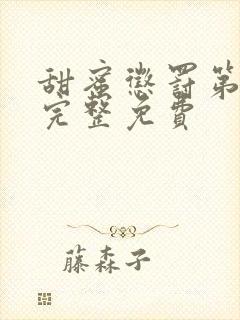 甜蜜懲罰第
完整免費
藤森子